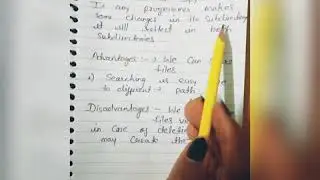 Is any programmer makes
some changes in its subdirectory
it will reflect in both
subdirectories
Advantages :- We can
files
Searching is easy
to different path
Disadvantages :- We
files
in case of
may create the